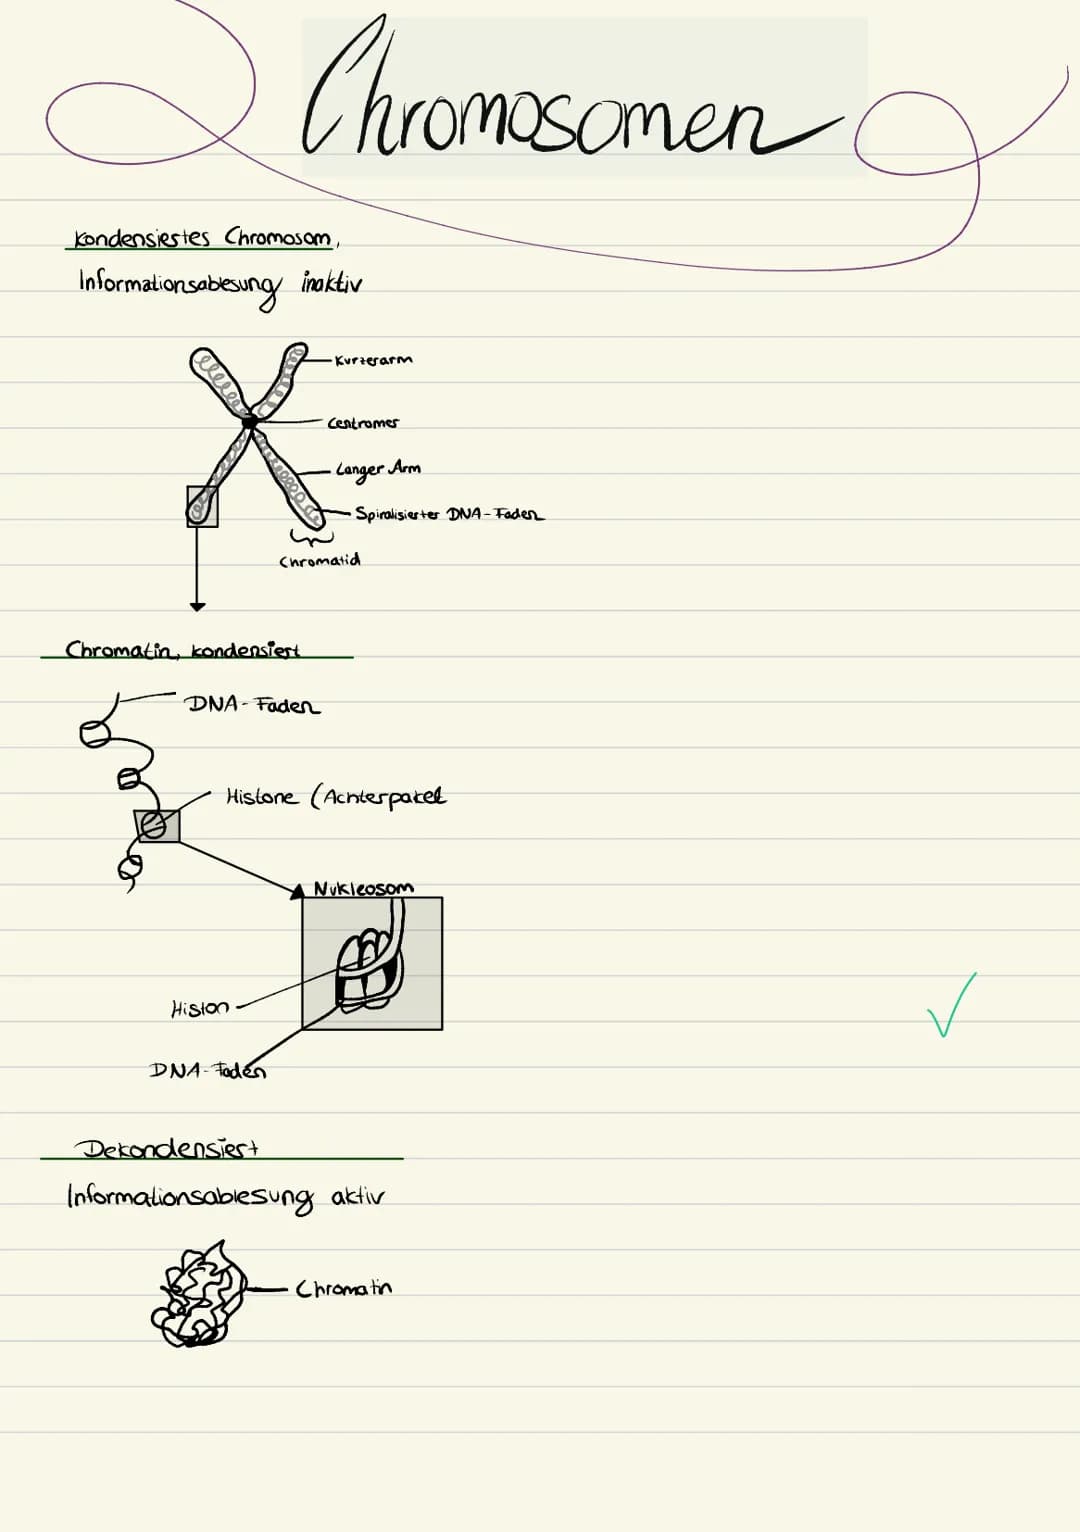 Chromosomen
Kondensiertes Chromosom,
Informationsablesung inaktiv
Kurzerarm
Centromer
Langer Arm
Spiralisierter DNA-Faden
Chromatid
Chromatin, kondensiert
DNA-Faden
Histone (Achterpaket
Nukleosom
Histon
DNA-Faden
Dekondensiert
Informationsablesung aktiv
Chromatin